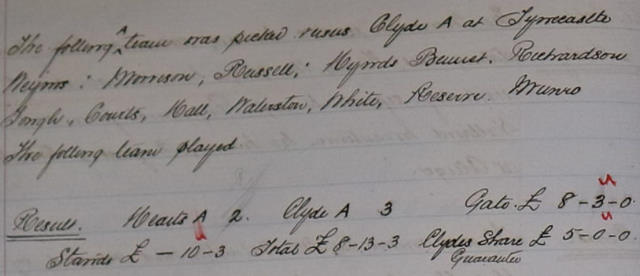 The folling A team was picked versus Clyde A at Tynecastle
Morrison, Russell, Hynds Richardson
Hall, Waterston, White, Reserve. Munro
The folling team played
Result. Hearts A 2. Clyde A 3 Gate. £ 8-3-0.
Stands £ -10-3 Total £ 8-13-3 Clydes Share £ 5-0-0
Guarantee